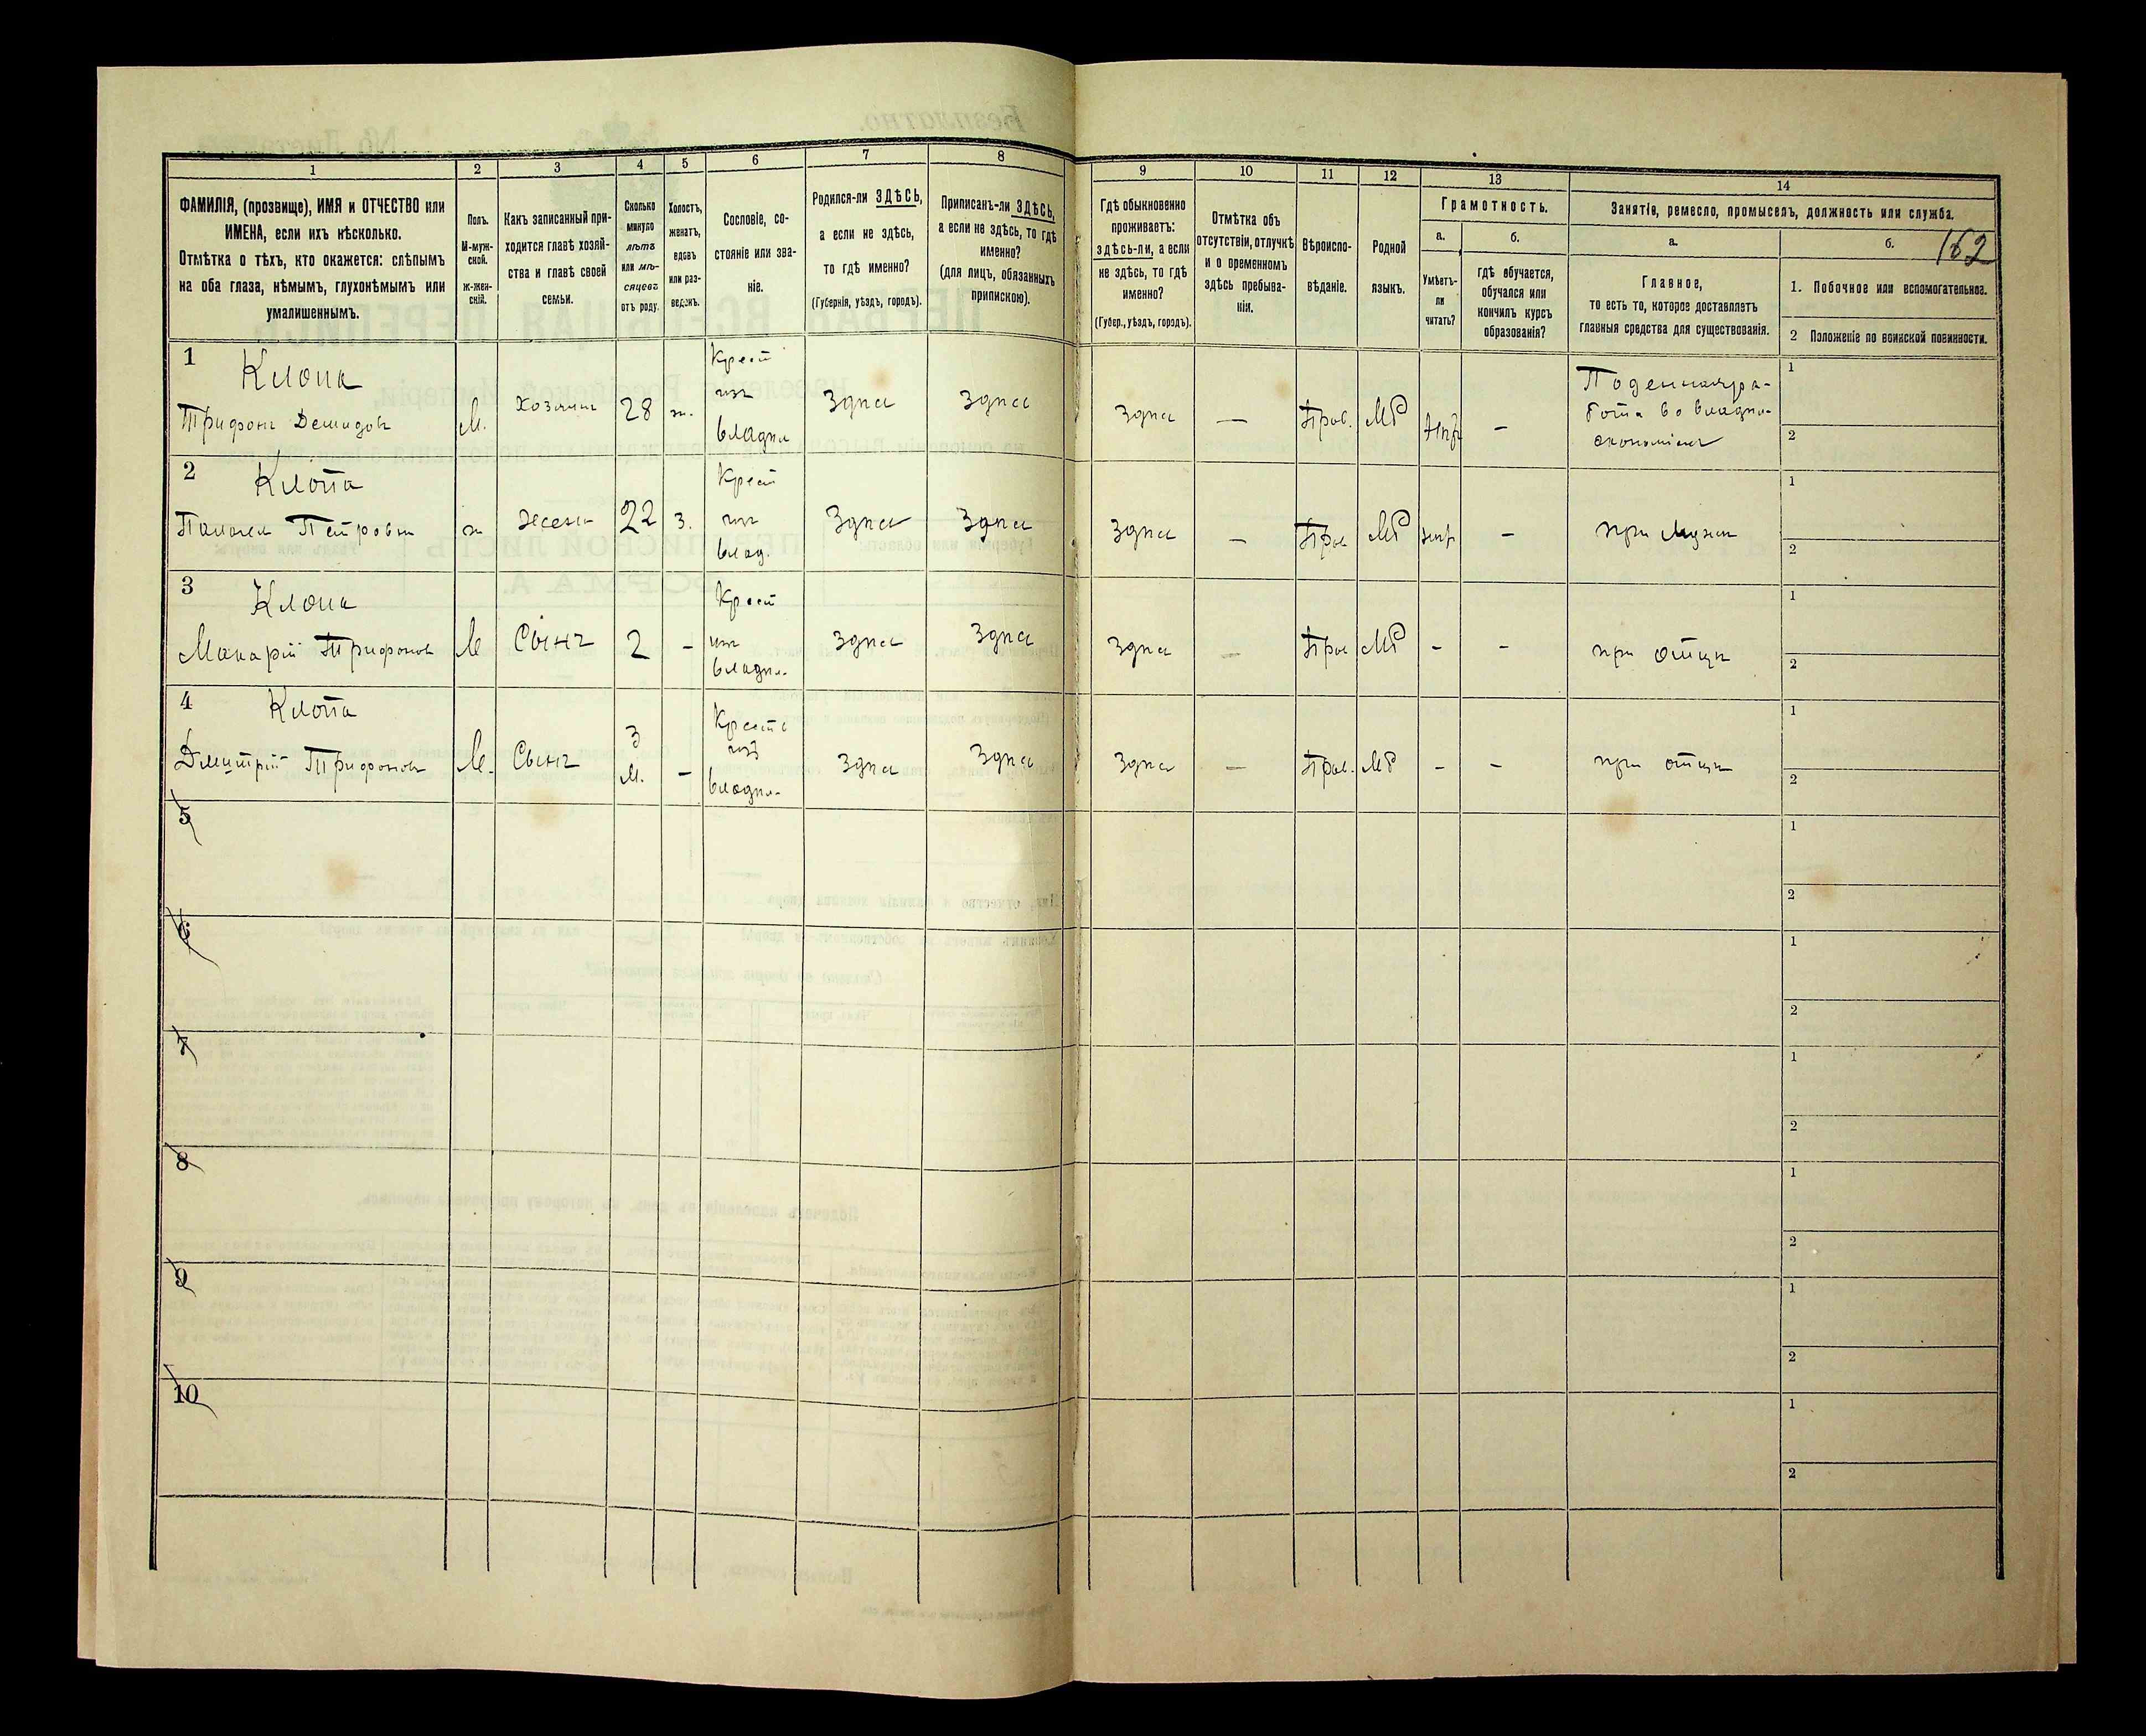 1
2
3
4
5
6
7
8
9
10
11
12
13
14
ФАМИЛІЯ, (прозвище), ИМЯ и ОТЧЕСТВО или
ИМЕНА, если ихъ нѣсколько.
Отмѣтка о тѣхъ, кто окажется: слѣпымъ
на оба глаза, нѣмымъ, глухонѣмымъ или
умалишеннымъ.
Полъ.
М-муж-
ской.
ж-жен-
скій.
Какъ записанный при-
ходится главѣ хозяй-
ства и главѣ своей
семьи.
Сколько
минуло
лѣтъ
или мѣ-
сяцевъ
отъ роду.
Холостъ,
женатъ,
вдовъ
или раз-
веденъ.
Сословіе, со-
стояніе или зва-
ніе.
Родился-ли ЗДѢСЬ,
а если не здѣсь,
то гдѣ именно?
(Губернія, уѣздъ, городъ).
Приписанъ-ли ЗДѢСЬ,
а если не здѣсь, то гдѣ
именно?
(для лицъ, обязанныхъ
припискою).
Гдѣ обыкновенно
проживаетъ:
здѣсь-ли, а если
не здѣсь, то гдѣ
именно?
(Губер., уѣздъ, городъ).
Отмѣтка объ
отсутствіи, отлучкѣ
и о временномъ
здѣсь пребыва-
ніи.
Вѣроиспо-
вѣданіе.
Родной
языкъ.
Грамотность.
а.
Умѣетъ-
ли
читать?
б.
гдѣ обучается,
обучался или
кончилъ курсъ
образованія?
Занятіе, ремесло, промыселъ, должность или служба.
а.
Главное,
то есть то, которое доставляетъ
главныя средства для существованія.
б.
162
1. Побочное или вспомогательное.
2 Положеніе по воинской повинности.
1
Клопа
Трифонъ Демидовъ
М.
Хозяинъ
28
ж.
Крест
изъ
владѣл
Здѣсь
Здѣсь
Здѣсь
—
Прав.
МР
—
Поденная ра-
бота во владѣл.
экономіяхъ
1
2
2
Клопа
Пелагея Петровна
ж
жена
22
З.
Крест
изъ
влад.
Здѣсь
Здѣсь
Здѣсь
—
Прав
МР
—
при мужѣ
1
2
3
Клопа
Макарій Трифоновъ
М
Сынъ
2
-
Крест
изъ
владѣл.
Здѣсь
Здѣсь
Здѣсь
—
Прав
МР
-
-
при отцѣ
1
2
4
Клопа
Дмитрій Трифоновъ
М.
Сынъ
3
М.
-
Крест
изъ
владѣл.
Здѣсь
Здѣсь
Здѣсь
—
Прав.
МР
-
-
при отцѣ
1
2
5
1
2
6
1
2
7
1
2
8
1
2
9
1
2
10
1
2